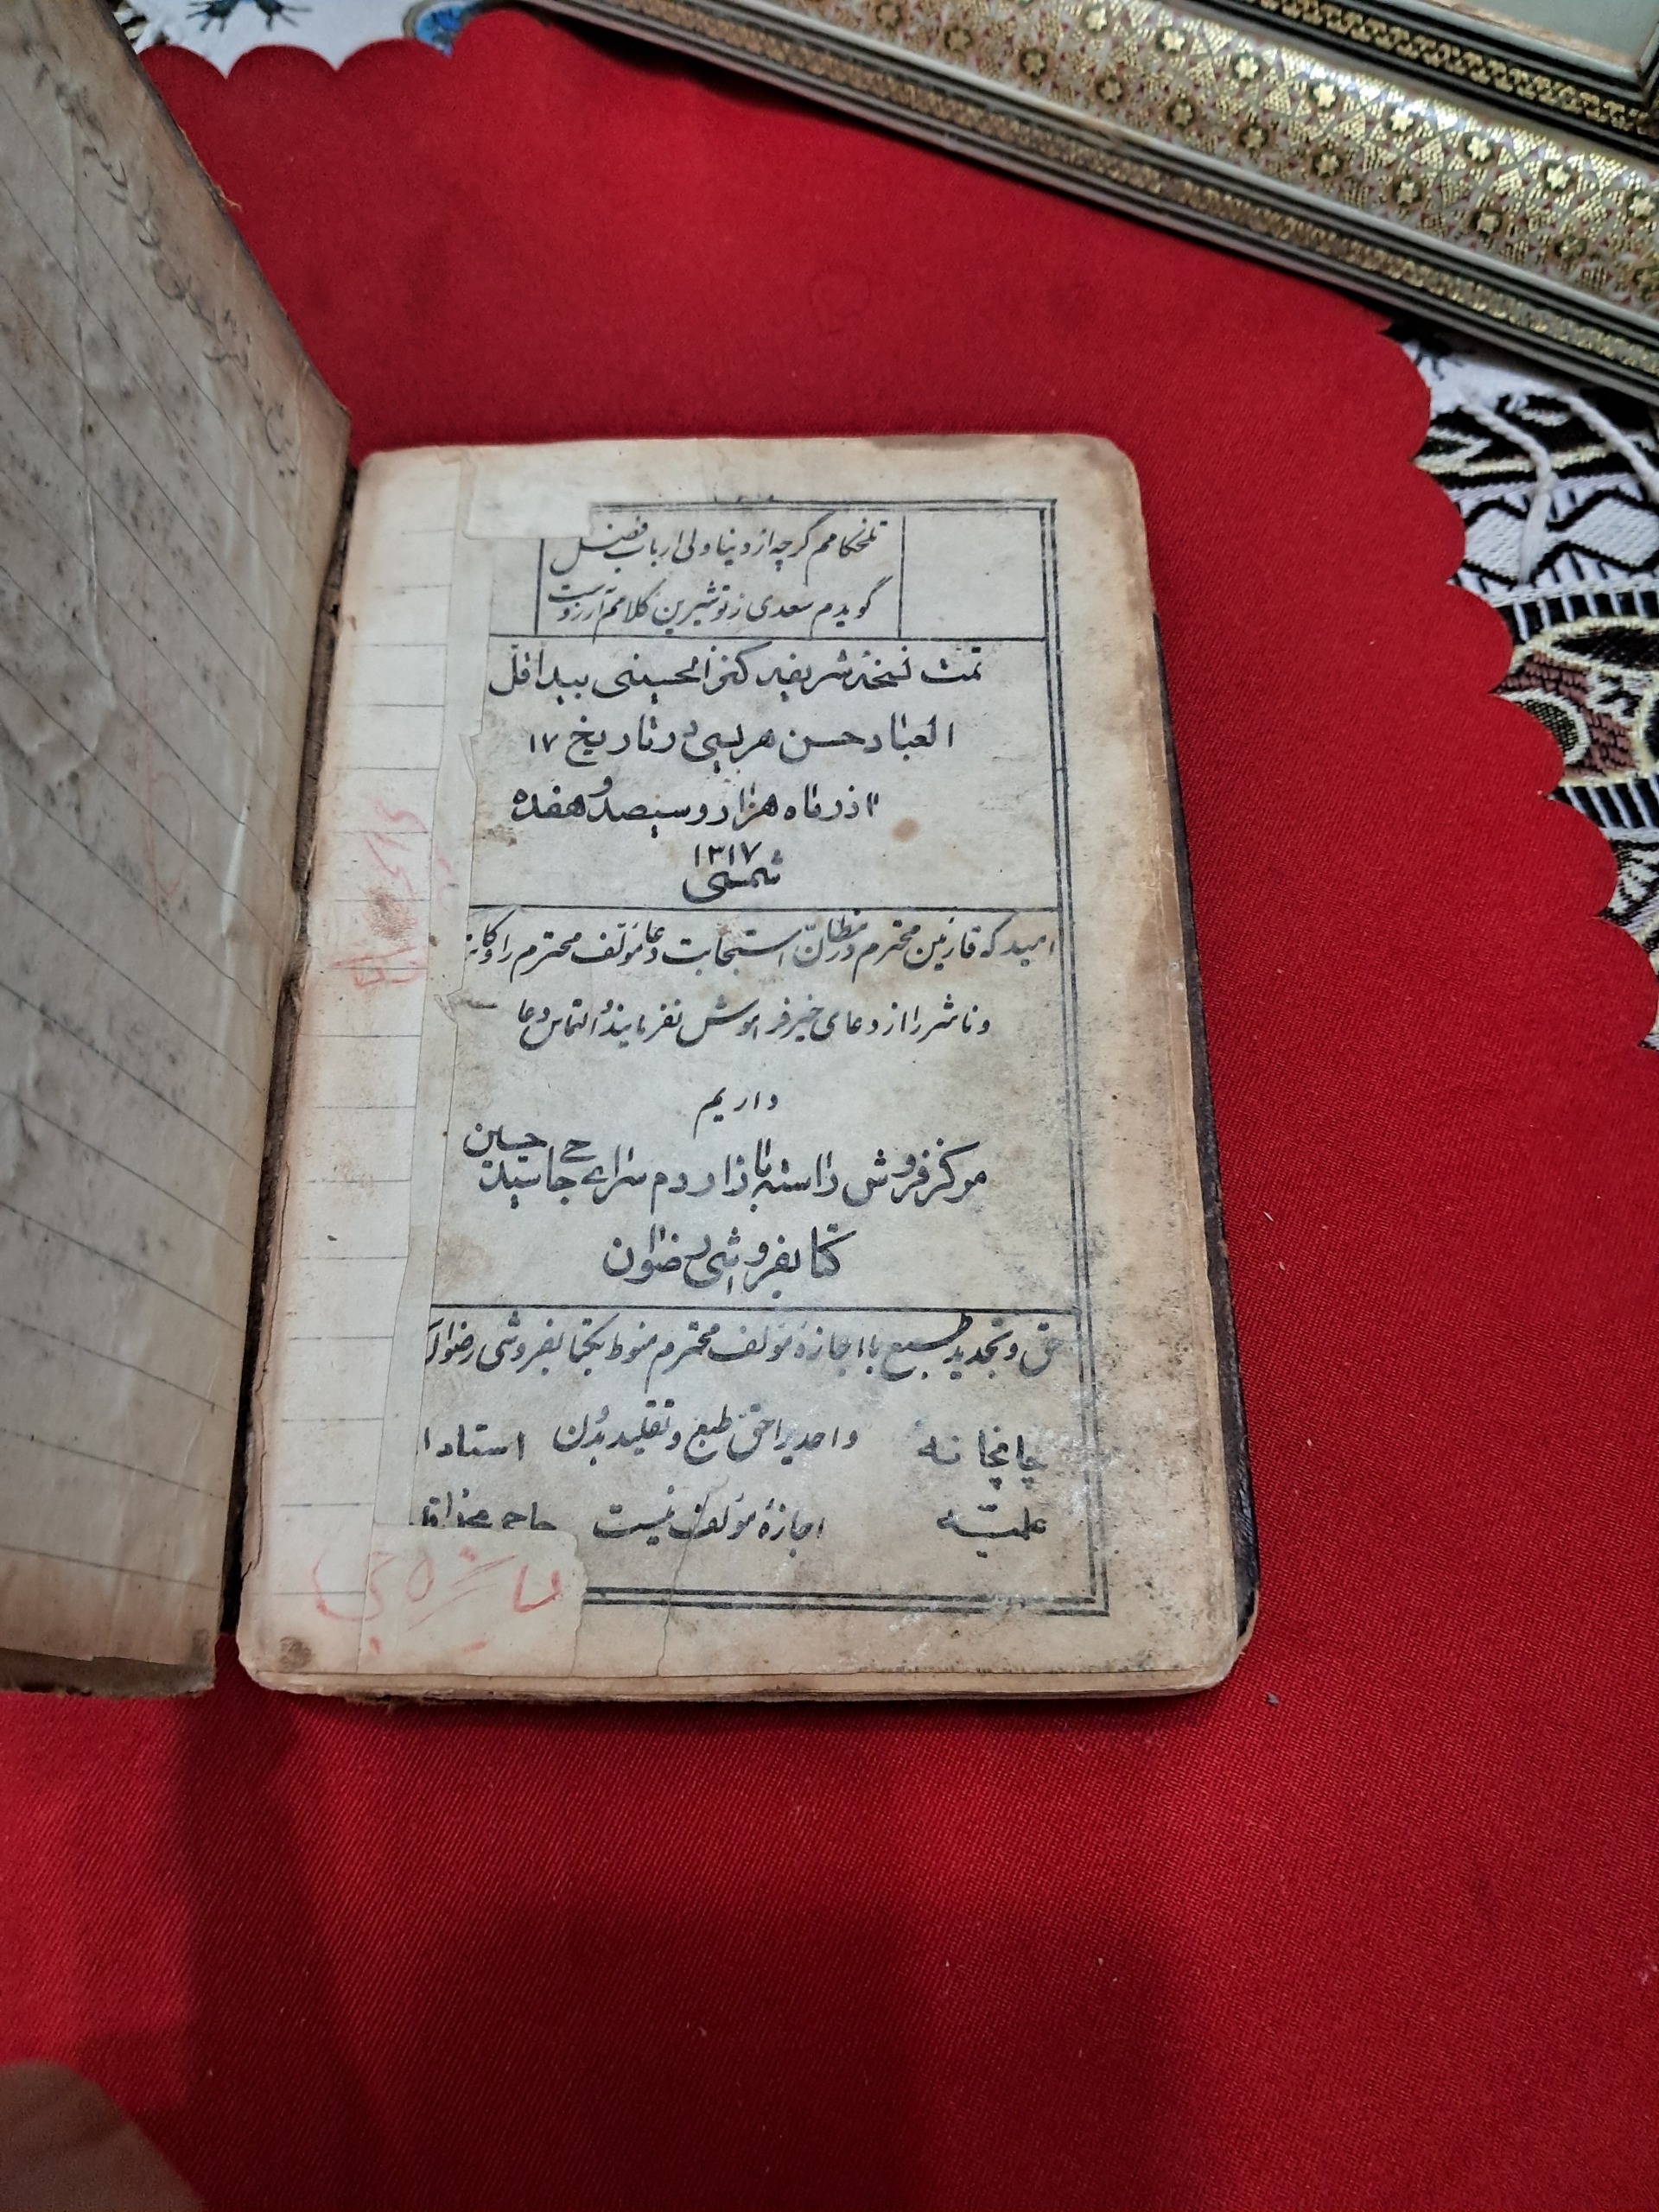 تلخکامم گرچه از دنیا ولی ارباب فضل
گویدم سعدی ز تو شیرین کلامم آرزوست
تمت نسخهٔ شریفه کنز الحسینی بید اقل
العباد حسن هریسی در تاریخ ۱۷
آذر ماه هزار و سیصد و هفده
۱۳۱۷
شمسی
امید که قارئین محترم در مظانّ استجابت دعا مؤلف محترم را و کا
و ناشر را از دعای خیر فراموش نفرمایند و التماس دعا
داریم
مرکز فروش راسته بازار دم سرای حاجی سید حسین
کتابفروشی رضوان
حق و تجدید طبع با اجازهٔ مؤلف محترم منوط بکتابفروشی رضوان
چاپخانه واحدیرا حق طبع و تقلید بدون استاد
علمیّه اجازهٔ مؤلف نیست حاج